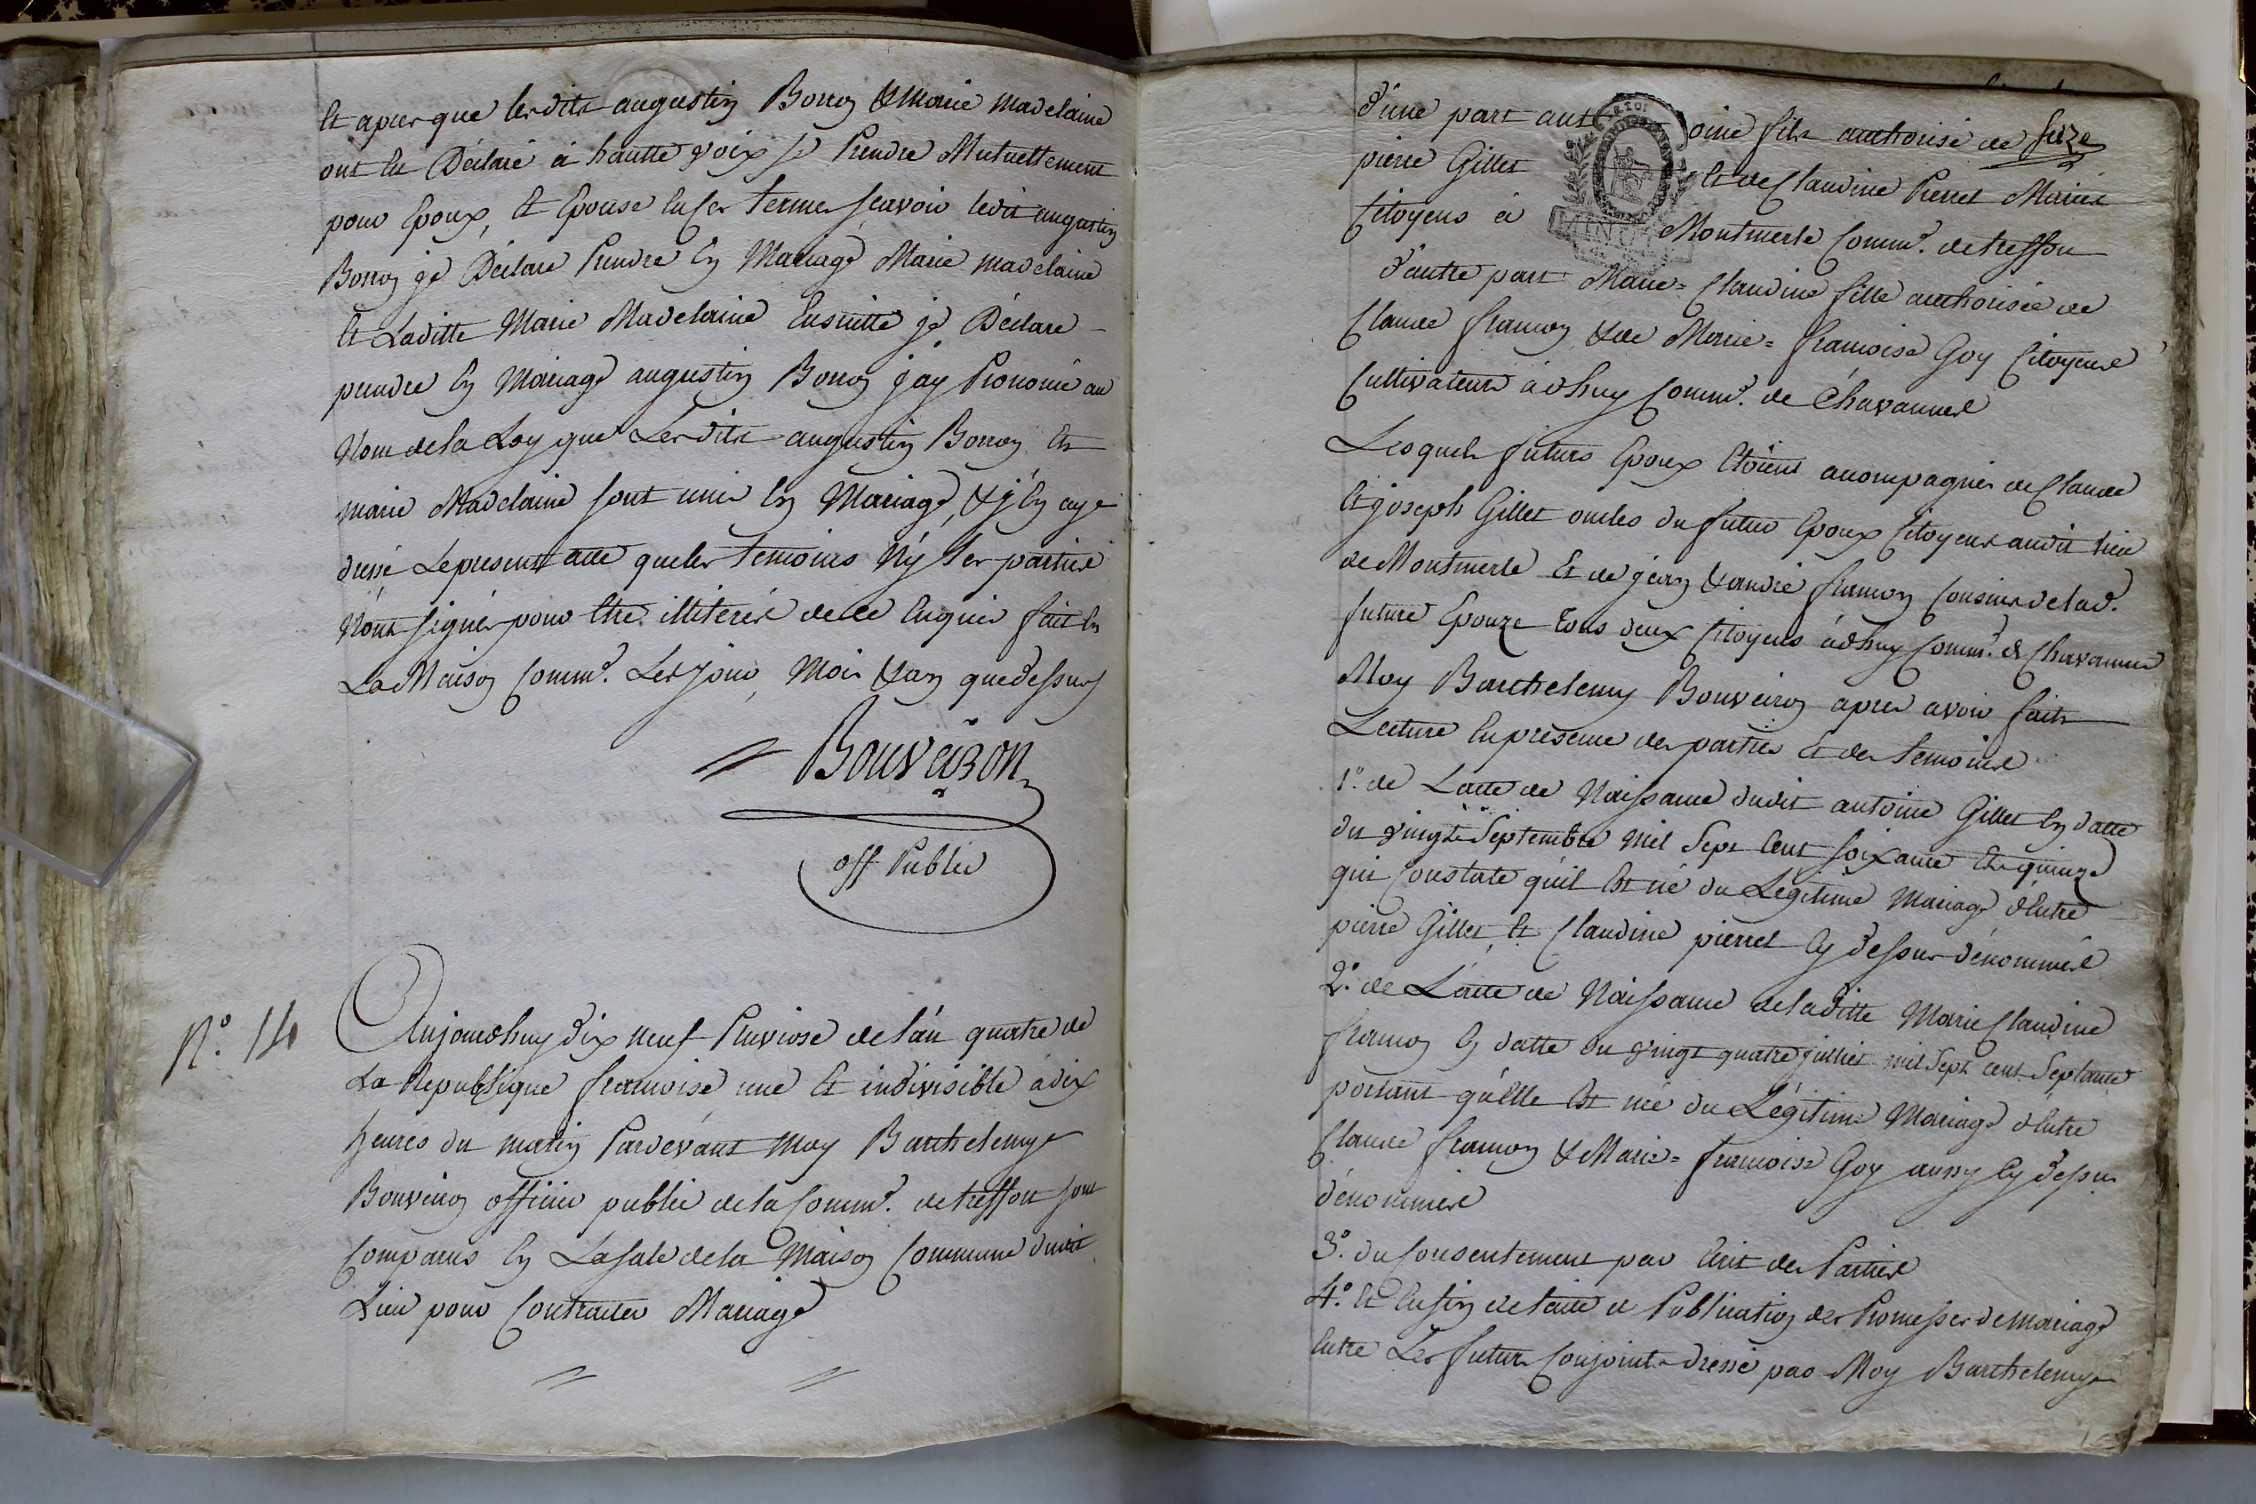 Et apres que lesdits augustin Borron & marie madelaine
ont Eu Déclaré à hautte voix se Prendre Mutuellement
pour Epoux, et Epouse En ses termes scavoir ledit augustin
Borron je Déclare Prendre En Mariage Marie madelaine
Et Laditte Marie Madelaine Ensuitte je Déclare
prendre En Mariage augustin Borron j'ay Prononcé au
Nom de la Loy que Lesdits augustin Borron Et
marie Madelaine sont unis En Mariage, & j'En aye
dressé Le present acte que les temoins N'y Les parties
N'ont signés pour Etre illiterés de ce Enquis fait En
La Maison Comm.e Les jour, Mois & an que dessus
Bouveiron
off Public
N.o 14
Aujourdhuy dix neuf Pluviose de l'an quatre de
La Republique francoise une Et indivisible à dix
heures du matin Pardevant Moy Barthelemy
Bouveiron officier public de la Comm.e de treffort sont
Comparus En La sale de la Maison Commune dudit
Lieu pour Contracter Mariage
d'une part ant oine fils authorisé de feize
pierre Gillet Et de Claudine Pierret Mariés
Citoyens à Montmerle Comm.e de treffort
d'autre part Marie = Claudine fille authorisée de
Claude framon & de Marie = francoise Goy Citoyens
Cultivateurs à dhuy Comm.e de Chavannes
Lesquels futurs Epoux Etoient acompagnés de Claude
Et joseph Gillet oncles du futur Epoux Citoyens audit lieu
de Montmerle Et de jean & andré framon Cousins de lad.e
future Epouze tous deux Citoyens à dhuy Comm.e de Chavannes
Moy Barthelemy Bouveiron apres avoir fait
Lecture En presence des parties Et des temoins
1.o de L'acte de Naissance dudit antoine Gillet En datte
du vingt Septembre mil Sept Cent soixante Et quinze
qui Constate qu'il Est né du Légitime Mariage d'Entre
pierre Gillet, Et Claudine pierret Cy dessus dénommés
2.o de L'acte de Naissance de laditte Marie Claudine
framon En datte du vingt quatre juillet mil Sept cent Septante
portant qu'Elle Est née du Légitime Mariage d'Entre
Claude framon & Marie = francoise Goy aussy Cy dessus
dénommés
3.o du Consentement par Ecrit des Parties
4.o Et Enfin de l'acte de Publication des Promesses de mariage
Entre Les futurs Conjoints dressé par Moy Barthelemy